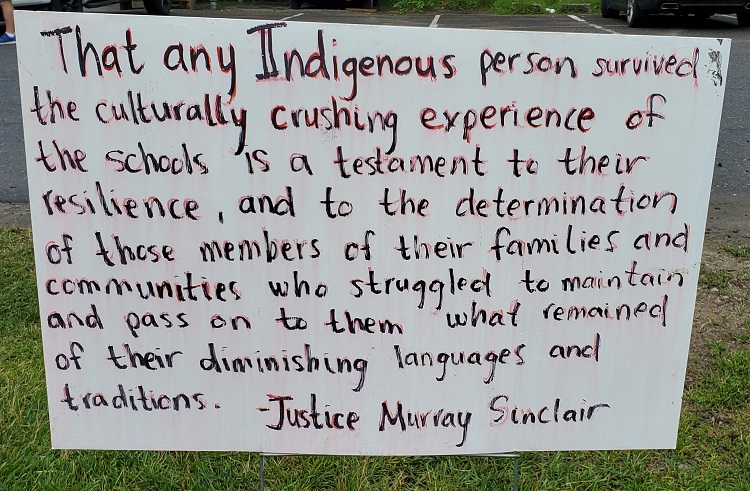 That any Indigenous person survived
the culturally crushing experience of
the schools is a testament to their
resilience, and to the determination
of those members of their families and
communities who struggled to maintain
and pass on to them what remained
of their diminishing languages and
traditions. -Justice Murray Sinclair